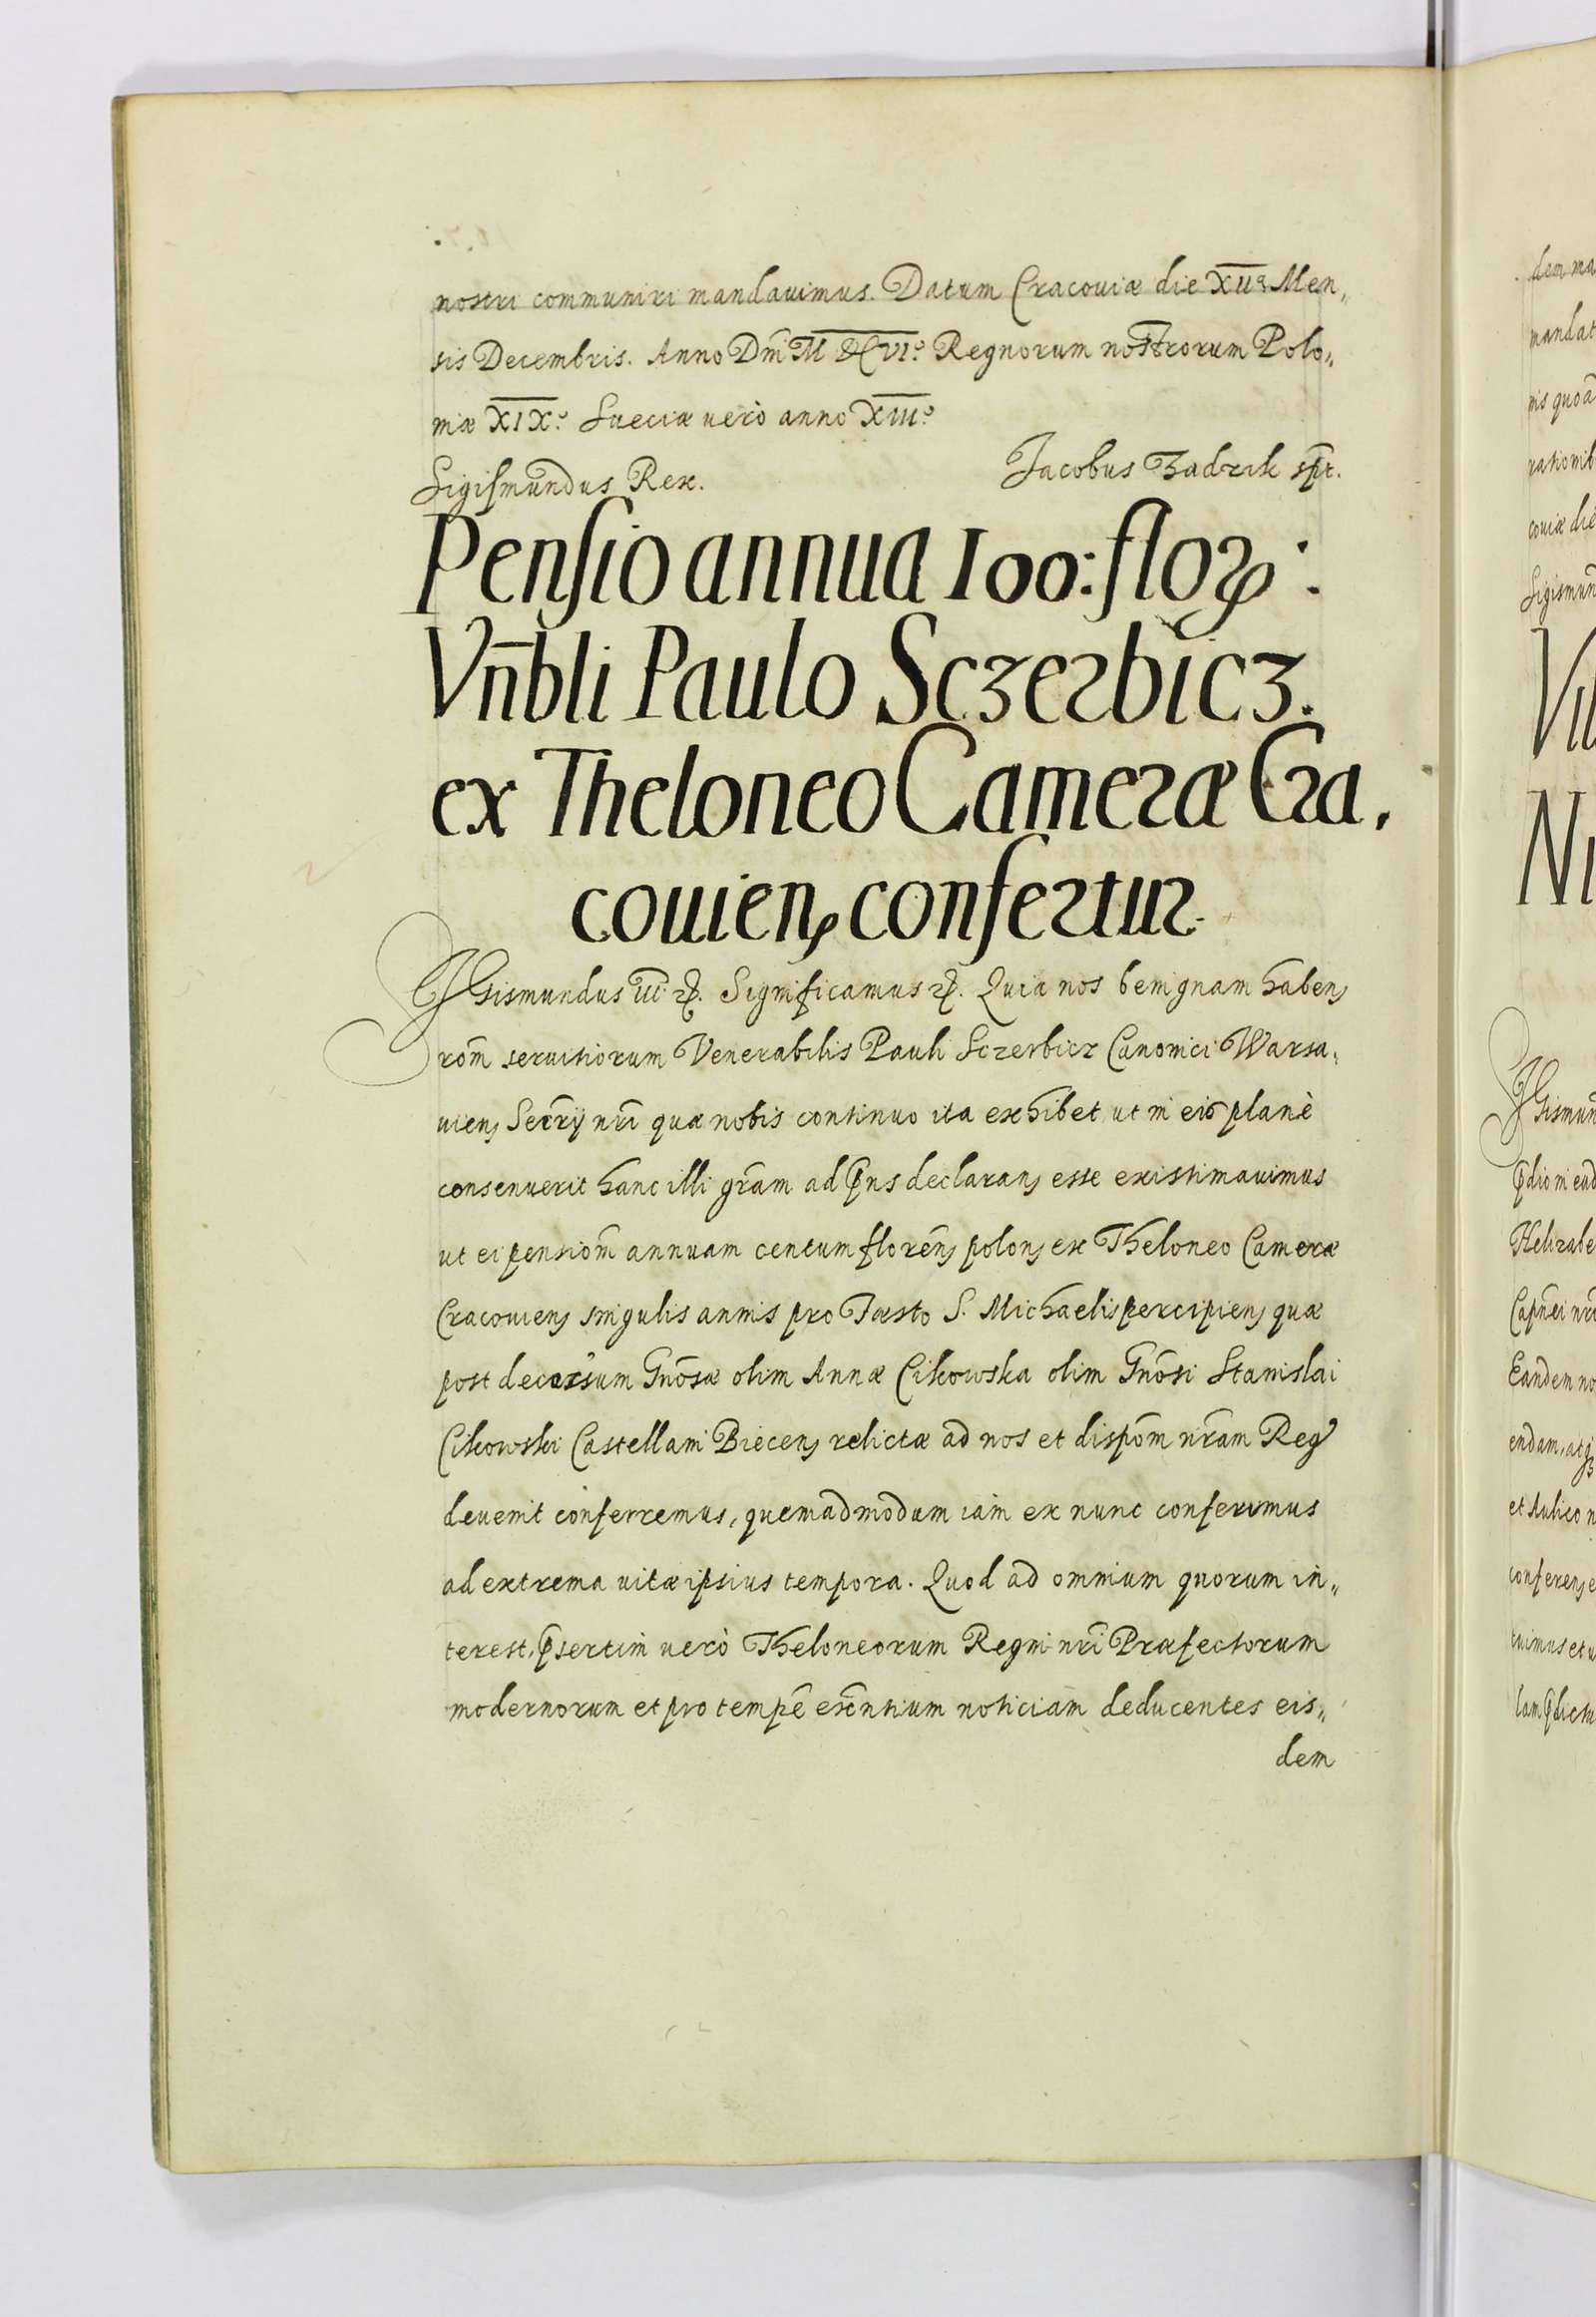 nostri communiri mandauimus. Datum Cracouiæ die XII.ª Men„
sis Decembris. Anno Dnī M DC VI.º Regnorum nostrorum Polo„
niæ XIX.º Sueciæ uerò anno XIII.º
Sigismundus Rex.
Jacobus Zadzik spt.
Pensio annua 100: flor:
Vn̄bli Paulo Sczerbicz.
ex Theloneo Cameræ Cra,
couien, confertur.
SIgismundus III. Significamus. Quia nos benignam haben,
rōm seruitiorum Venerabilis Pauli Sczerbicz Canonici Warsa,
uien, Secrīj nrī quæ nobis continuo ita exhibet, ut in eis planè
consenuerit hanc illi grām ad p̄ns declaran, esse existimauimus
ut ei pensiōm annuam centum florēn, polon, ex Theloneo Cameræ
Cracouien, singulis annis pro Festo S. Michaelis percipien, quæ
post decessum Gnōsæ olim Annæ Cikowska olim Gnōsi Stanislai
Cikowski Castellani Biecen, relictæ ad nos et dispōm nrām Reg
deuenit conferremus, quemadmodum iam ex nunc conferimus
ad extrema uitæ ipsius tempora. Quod ad omnium quorum in„
terest, p̄sertim uerò Theloneorum Regni nrī Præfectorum
modernorum et pro tempē exn̄tium noticiam deducentes eis„
dem